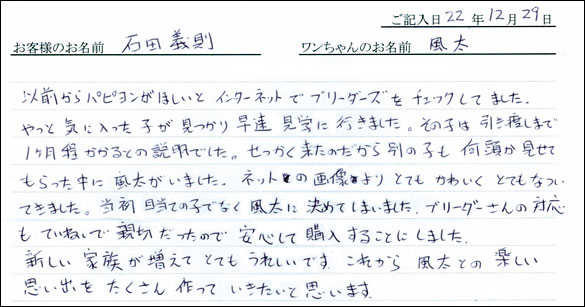 ご記入日 22 年 12 月 29 日
お客様のお名前 石田義則 ワンちゃんのお名前 風太
以前からパピヨンがほしいと インターネットで ブリーダーズを チェックしてました。
やっと 気に入った子が 見つかり 早速 見学に 行きました。その子は 引き渡しまで
1ヶ月程かかるとの説明でした。せっかく来たのだから 別の子も 何頭か見せて
もらった中に 風太がいました。ネットの画像より とてもかわいく とてもなつい
てきました。当初 目当ての子でなく 風太に 決めてしまいました。ブリーダーさんの対応
も ていねいで 親切だったので 安心して 購入することにしました。
新しい 家族が 増えて とてもうれしいです。これから 風太との 楽しい
思い出を たくさん 作って いきたいと 思います。